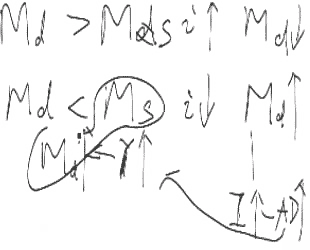 Md > Ms i↑ Md↓
Md < Ms i↓ Md↑
Md↑ ← Y↑
I↑ - AD↑